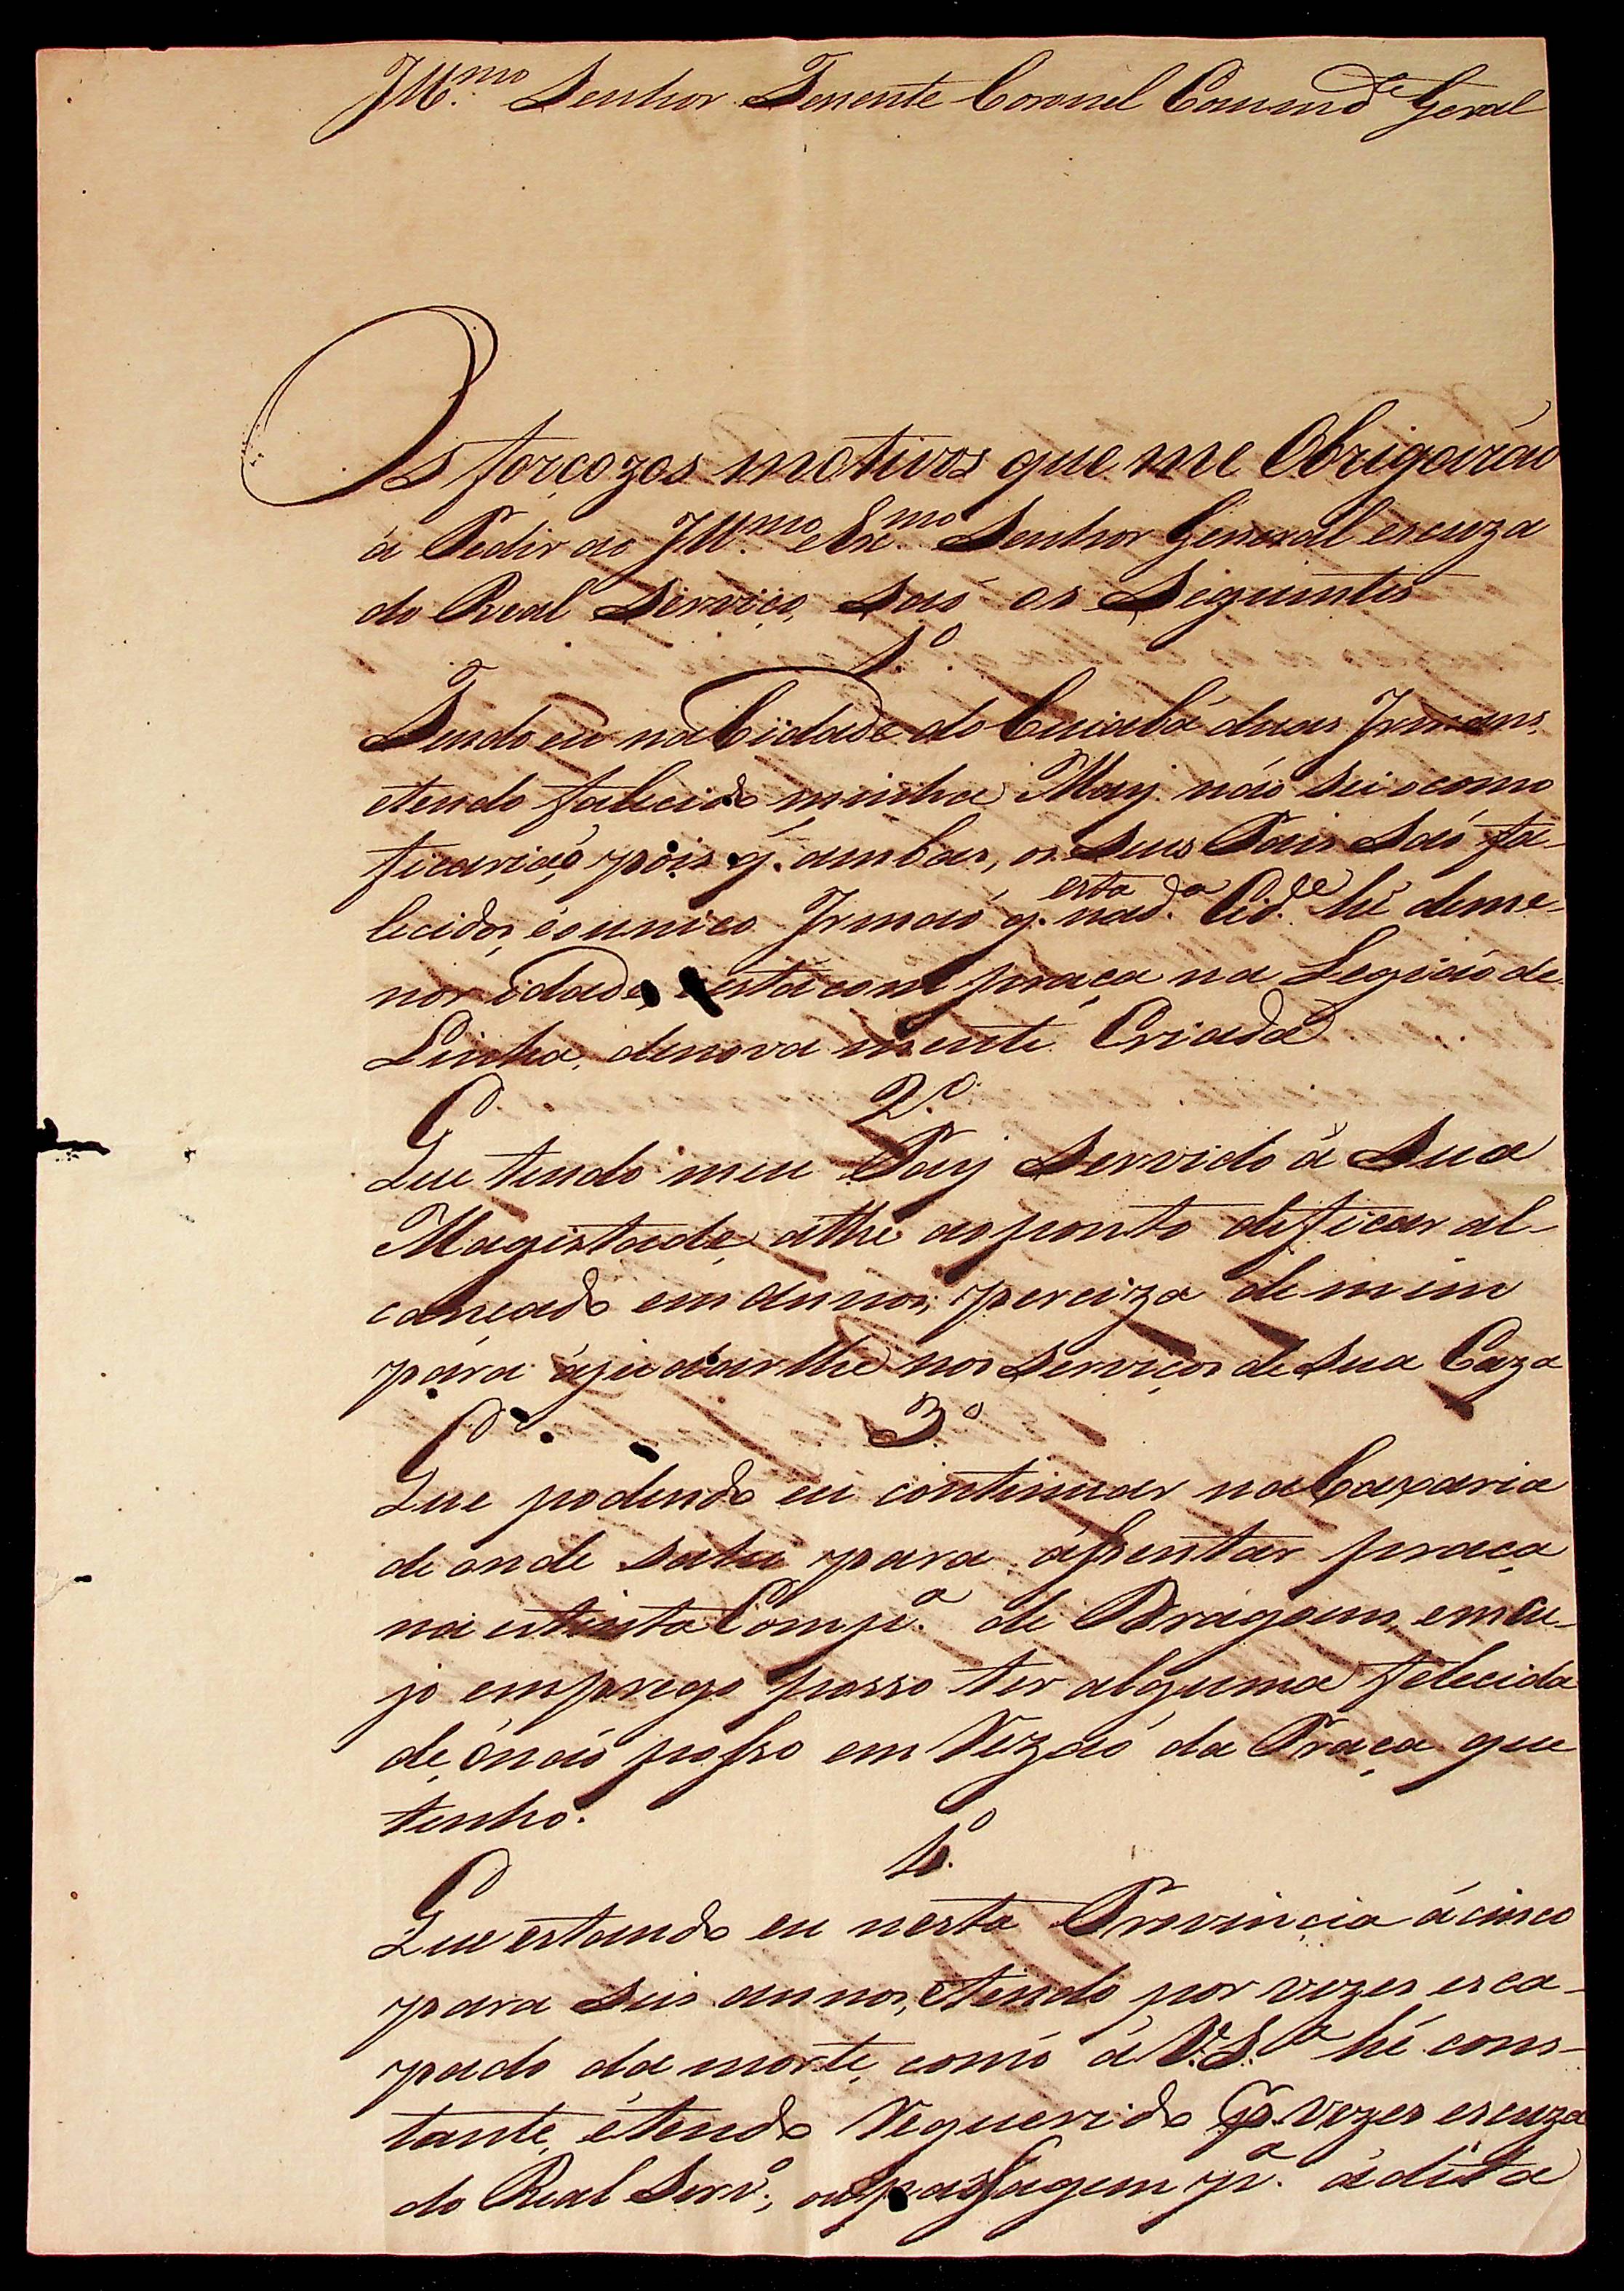 Ill.mo Senhor Tenente Coronel Commd.e Geral
Os forçozos motivos que me Obrigaráo
á Pedir ao Ill.mo e Ex.mo Senhor General escuza
do Real Serviço, Saó os Seguintes
1.o
Tendo eu na Cidade do Cuiabá duas Irmans,
etendo falecido minha May náo Sei ocomo
ficariaó, pois q. ambas, os Seus Pais Saó fa-
lecidos, éounico Irmaó q. esta nad.a Cid.e hé deme-
nor idade, está com praça na Legiaó de
Linha, denova mente Criada
2.o
Que tendo meu Pay Servido á Sua
Magistade, athé ao ponto deficar al-
cançado em annos, perciza de mim
pára ájudarlhe nos Serviços de Sua Caza
3.o
Que podendo eu continuar na Caxaria
de onde Sahi para ássentar praça
na estinta Comp.a de Dragoens, em cu-
jo emprego posso ter alguma felecida
de, ónaó posso em Rezaó da Praça que
tenho.
4.o
Que estando eu nesta Provincia ácinco
para Seis annos, etendo por vezes esca-
pado da morte, como á V.S.a hé cons-
tante, étendo Requerido p.r vezes escuza
do Real Serv.o, ou passagem p.a ádita